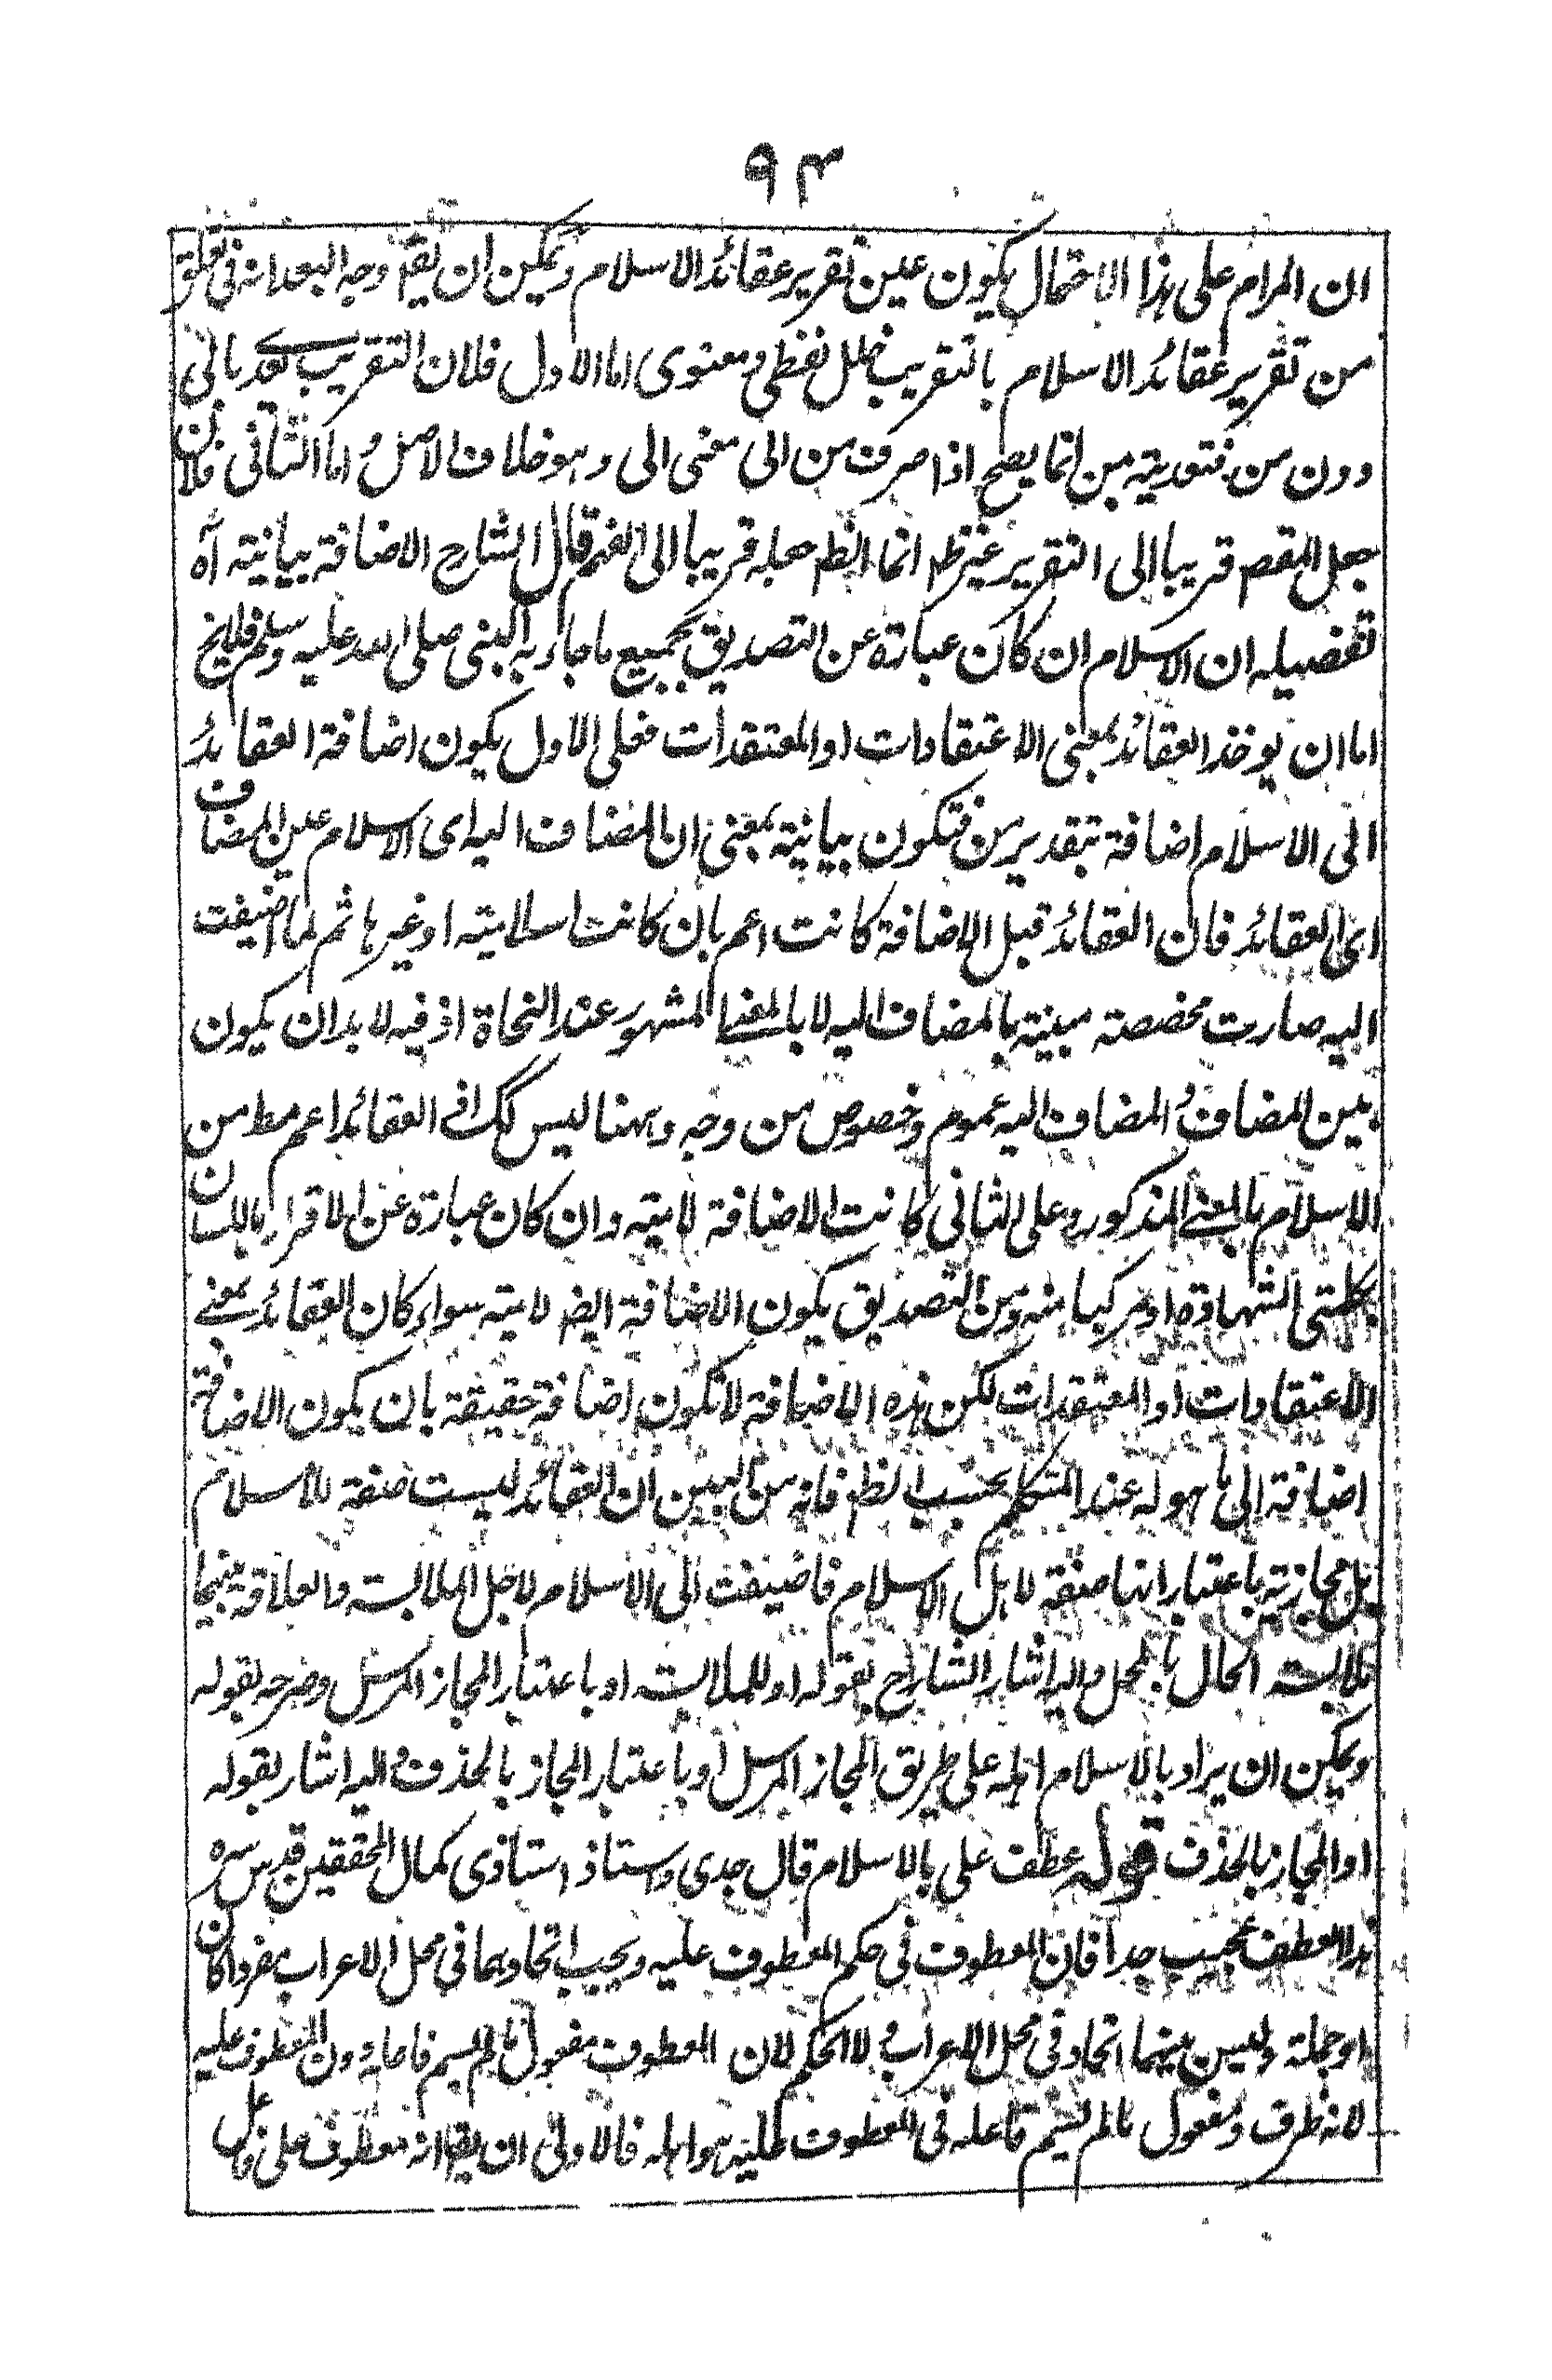 ٩٤
ان المرام على هذا الاحتمال يكون عين تقرير عقائد الاسلام ويمكن ان يقر وجه البعد انه فى تعلق
من تقرير عقائد الاسلام بالتقريب خلل لفظى ومعنوى اما الاول فلان التقريب يعد بالى
دون من فتعديته بمن انما يصح اذا صرف من الى معنى الى وهو خلاف الاصل واما الثانى فلان
جعل المقصد قريبا الى التقرير غير ظ انما الظ جعله قريبا الى الفهم قال الشارح الاضافة بيانية آه
تفصيله ان الاسلام ان كان عبارة عن التصديق بجميع ما جاء به النبى صلى الله عليه وسلم فلايخ
اما ان يوخذ العقائد بمعنى الاعتقادات او المعتقدات فعلى الاول يكون اضافة العقائد
الى الاسلام اضافة بتقدير من فتكون بيانية بمعنى ان المضاف اليه اى الاسلام عين المضاف
اى العقائد فان العقائد قبل الاضافة كانت اعم بان كانت اسلامية او غيرها ثم لما اضيفت
اليه صارت مخصصة مبينة بالمضاف اليه لا بالمعنى المشهور عند النحاة اذ فيه لا بد ان يكون
بين المضاف والمضاف اليه عموم وخصوص من وجه وههنا ليس كك اذ العقائد اعم مط من
الاسلام بالمعنى المذكور وعلى الثانى كانت الاضافة لامية وان كان عبارة عن الاقرار باللسان
بكلمتى الشهادة او مركبا منه ومن التصديق يكون الاضافة ايض لامية سواء كان العقائد بمعنى
الاعتقادات او المعتقدات لكن هذه الاضافة لا تكون اضافة حقيقة بان يكون الاضافة
اضافة الى ما هو له عند المتكلم بحسب الظ فانه من البين ان العقائد ليست صفة للاسلام
بل مجازية باعتبار انها صفة لاهل الاسلام فاضيفت الى الاسلام لاجل الملابسة والعلاقة بينهما
ملابسة الحال بالمحل واليه اشار الشارح بقوله او للملابسة او باعتبار المجاز المرسل وصرحه بقوله
ويمكن ان يراد بالاسلام اهله على طريق المجاز المرسل او باعتبار المجاز بالحذف واليه اشار بقوله
او المجاز بالحذف قوله عطف على بالاسلام قال جدى واستاذ استاذى كمال المحققين قدس سره
هذا العطف عجيب جدا فان المعطوف فى حكم المعطوف عليه ويجب اتحادهما فى محل الاعراب مفردا كان
او جملة وليس بينهما اتحاد فى محل الاعراب ولا الحكم لان المعطوف مفعول ما لم يسم فاعله دون المعطوف عليه
لانه ظرف ومفعول ما لم يسم فاعله فى المعطوف عليه هو اهله فالاولى ان يقر انه معطوف على فاعل